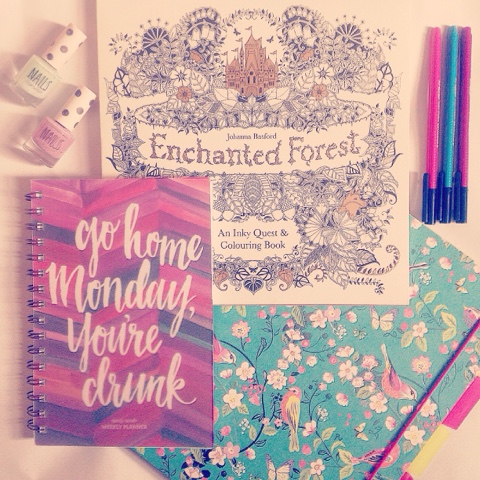 NAILS
NAILS
Johanna Basford
Enchanted Forest
An Inky Quest &
Colouring Book
go home
Monday,
you're
drunk
WEEKLY PLANNER